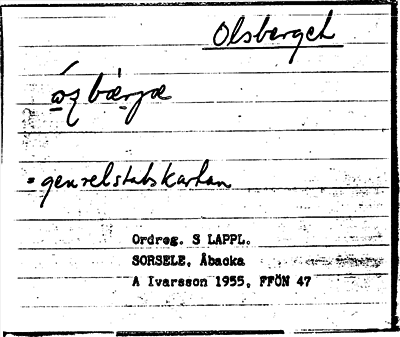 Olsberget
bærjæ
= genrelstabskartan
Ordreg. S LAPPL.
SORSELE, Åbacka
A Ivarsson 1955, FFÖN 47